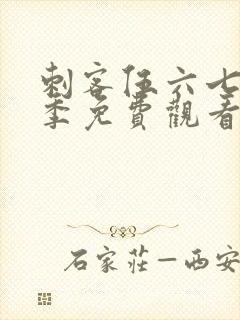 刺客伍六七
季免費觀看
石家莊－西安